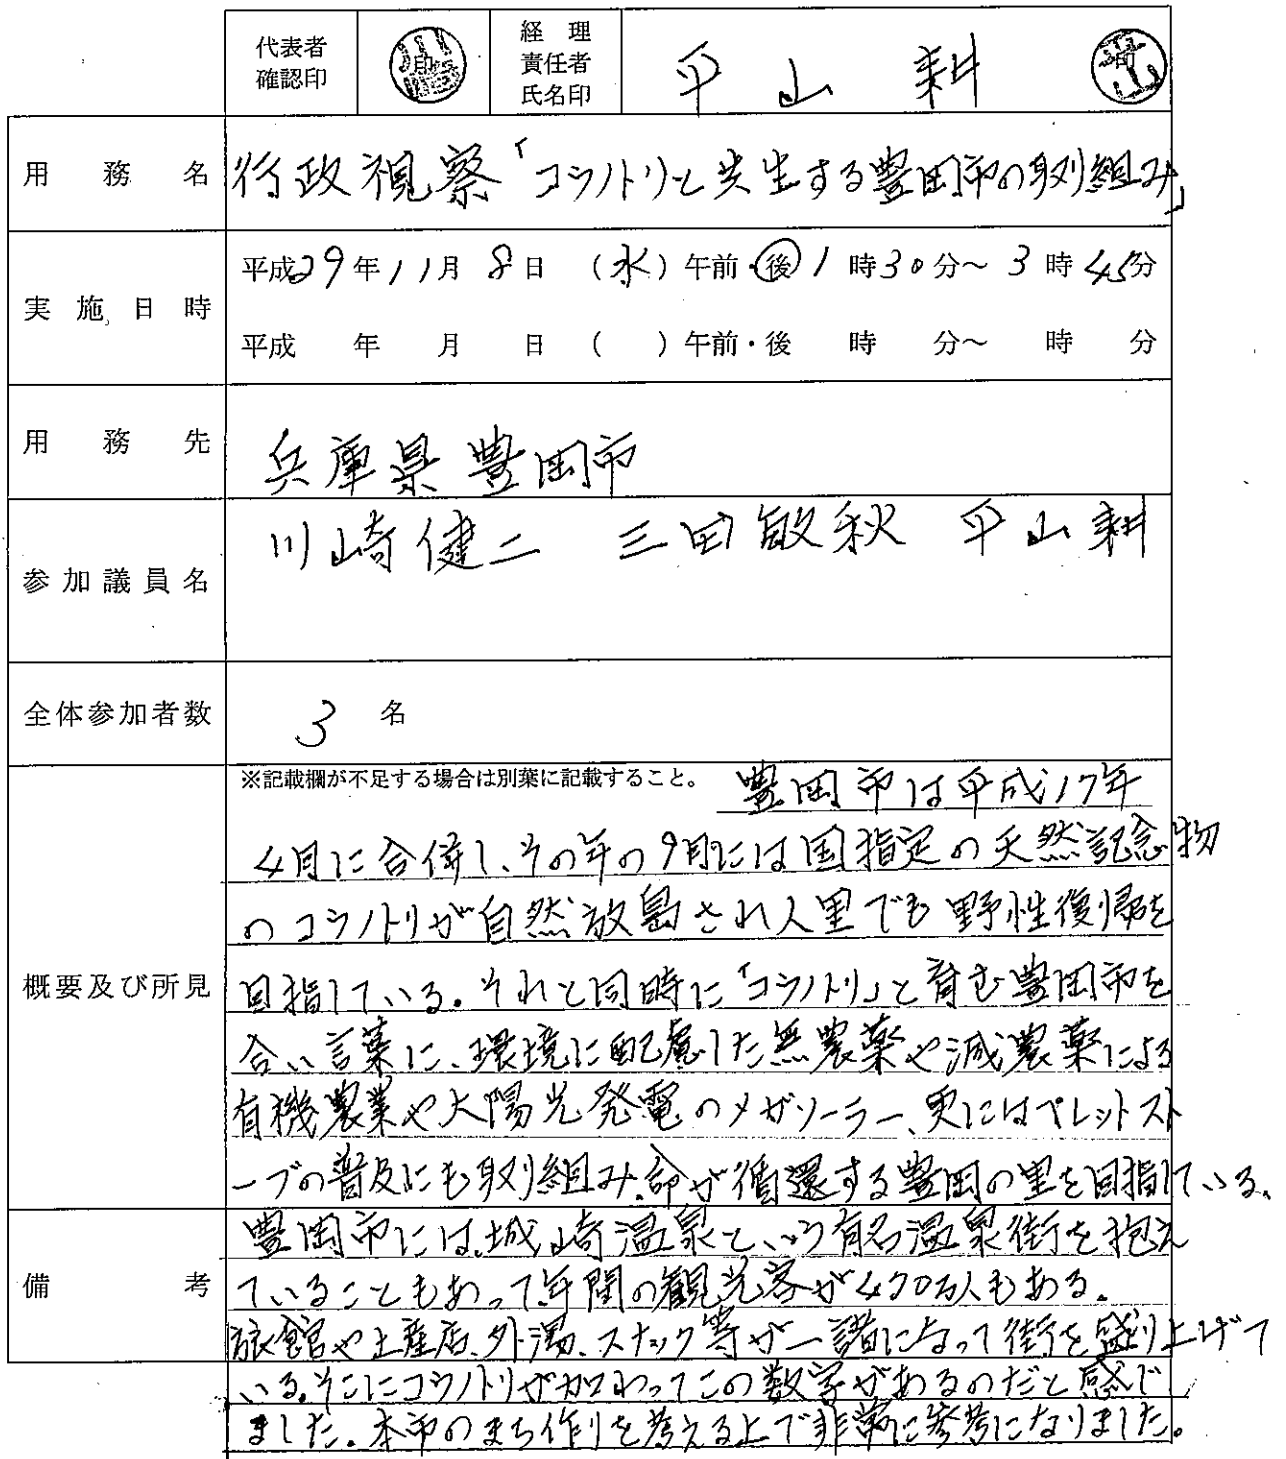 代表者
確認印
経理
責任者
氏名印
平山 耕
用務名 行政視察「コウノトリと共生する豊岡市の取り組み」
実施日時
平成29年11月8日(水)午前・後1時30分～3時45分
平成 年 月 日( )午前・後 時 分～ 時 分
用務先 兵庫県豊岡市
参加議員名 川崎健二 三田敏秋 平山耕
全体参加者数 3名
概要及び所見
※記載欄が不足する場合は別葉に記載すること。 豊岡市は平成17年
4月に合併し、その年の9月には国指定の天然記念物
のコウノトリが自然放鳥され人里でも野性復帰を
目指している。それと同時に「コウノトリ」と育む豊岡市を
合い言葉に、環境に配慮した無農薬や減農薬による
有機農業や太陽光発電のメガソーラー、更にはペレットスト
ーブの普及にも取り組み、命が循還する豊岡の里を目指している。
備考
豊岡市には、城崎温泉という有名温泉街を抱え
ていることもあって、年間の観光客が470万人もある。
旅館や土産店、外湯、スナック等が一諸になって街を盛り上げて
いる。そこにコウノトリが加わってこの数字があるのだと感じ
ました。本市のまち作りを考える上で非常に参考になりました。